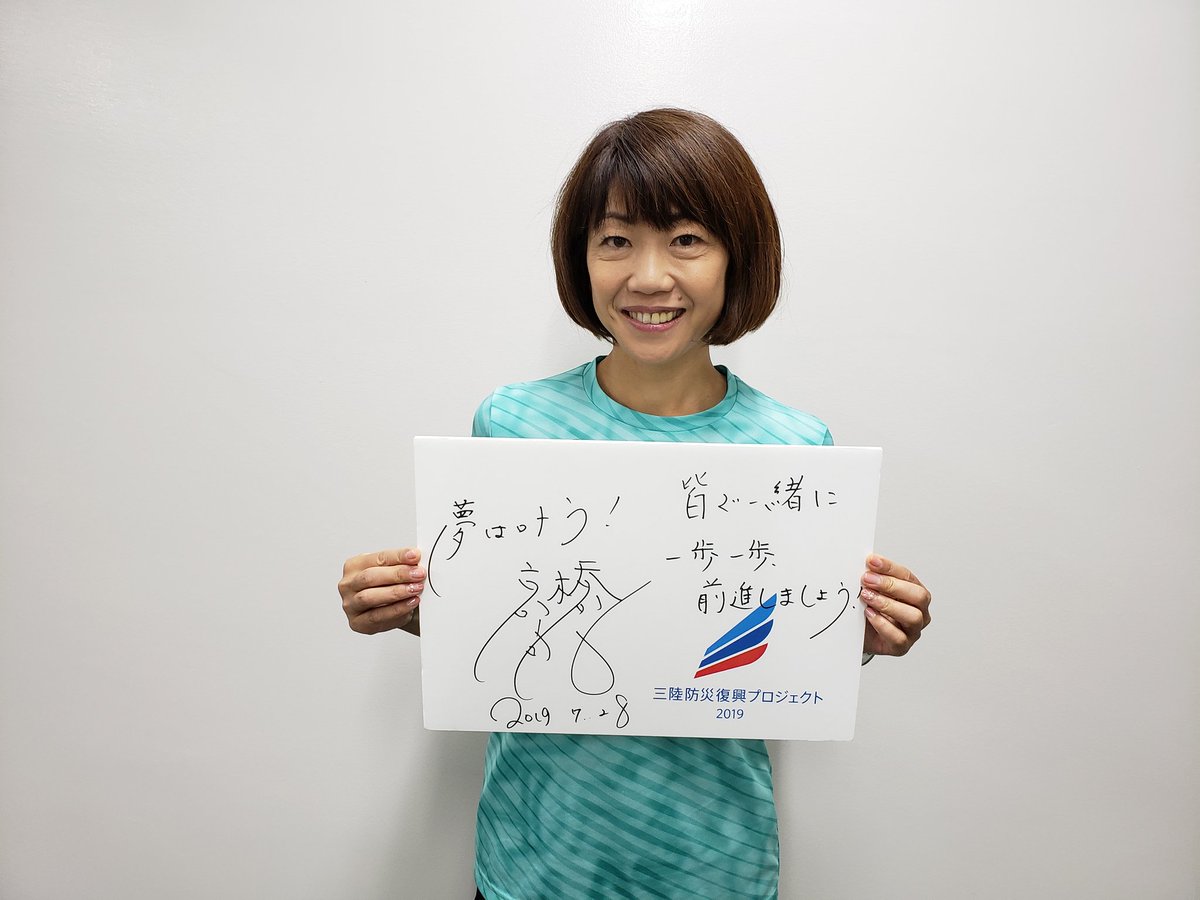 皆で一緒に
一歩一歩、
前進しましょう!
夢は叶う!
高橋
2019 7.28
三陸防災復興プロジェクト
2019